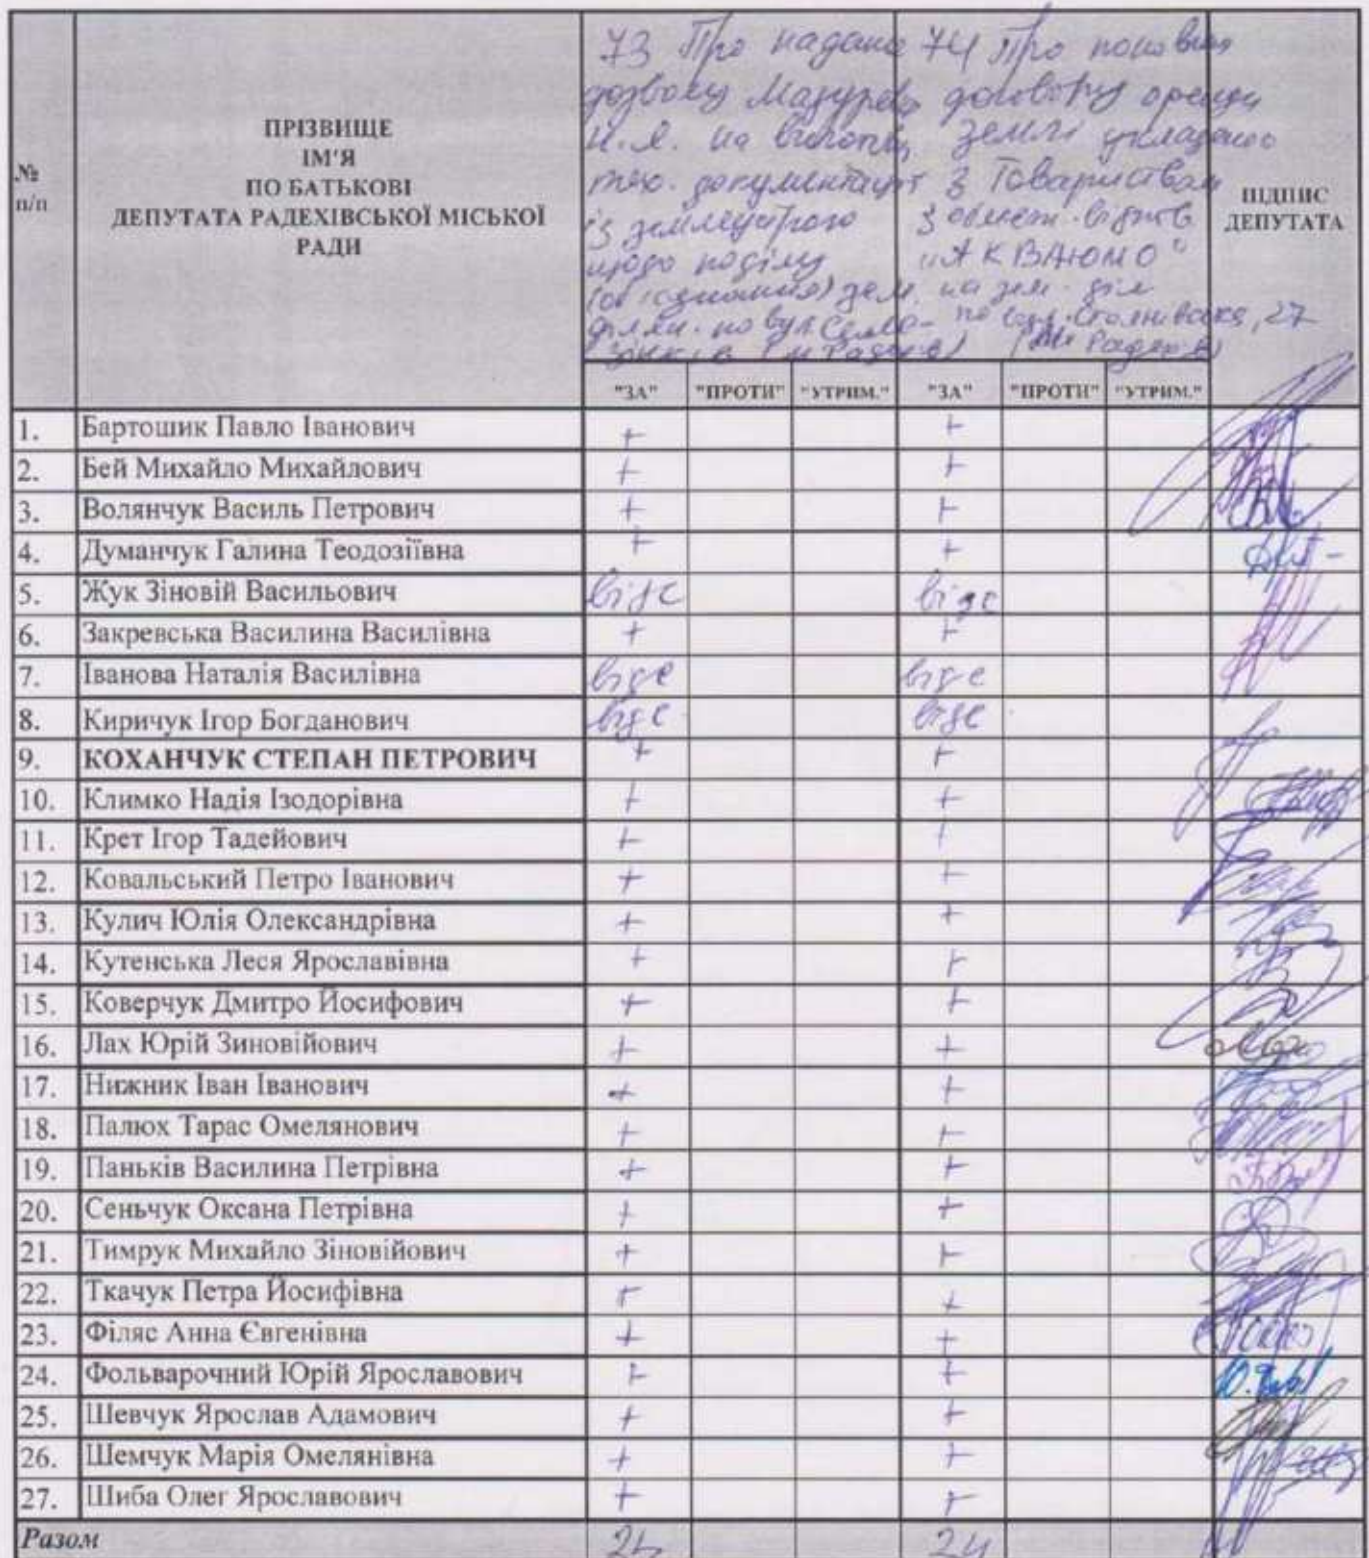 № п/п
ПРІЗВИЩЕ
ІМ'Я
ПО БАТЬКОВІ
ДЕПУТАТА РАДЕХІВСЬКОЇ МІСЬКОЇ
РАДИ
73 Про надане
дозволу
на
тех. документації
із землеустрою
щодо поділу
зем.
по вул
74 Про понов
договору оренди
землі укладено
з Товариством
з обмеж. відпов
"АКВАЮМО"
на зем. діл
27
(м. Радехів)
ПІДПИС
ДЕПУТАТА
"ЗА" "ПРОТИ" "УТРИМ." "ЗА" "ПРОТИ" "УТРИМ."
1. Бартошик Павло Іванович + +
2. Бей Михайло Михайлович + +
3. Волянчук Василь Петрович + +
4. Думанчук Галина Теодозіївна + +
5. Жук Зіновій Васильович відс відс
6. Закревська Василина Василівна + +
7. Іванова Наталія Василівна відс відс
8. Киричук Ігор Богданович відс відс
9. КОХАНЧУК СТЕПАН ПЕТРОВИЧ + +
10. Климко Надія Ізодорівна + +
11. Крет Ігор Тадейович + +
12. Ковальський Петро Іванович + +
13. Кулич Юлія Олександрівна + +
14. Кутенська Леся Ярославівна + +
15. Коверчук Дмитро Йосифович + +
16. Лах Юрій Зиновійович + +
17. Нижник Іван Іванович + +
18. Палюх Тарас Омелянович + +
19. Паньків Василина Петрівна + +
20. Сеньчук Оксана Петрівна + +
21. Тимрук Михайло Зіновійович + +
22. Ткачук Петра Йосифівна + +
23. Філяс Анна Євгенівна + +
24. Фольварочний Юрій Ярославович + +
25. Шевчук Ярослав Адамович + +
26. Шемчук Марія Омелянівна + +
27. Шиба Олег Ярославович + +
Разом 24 24